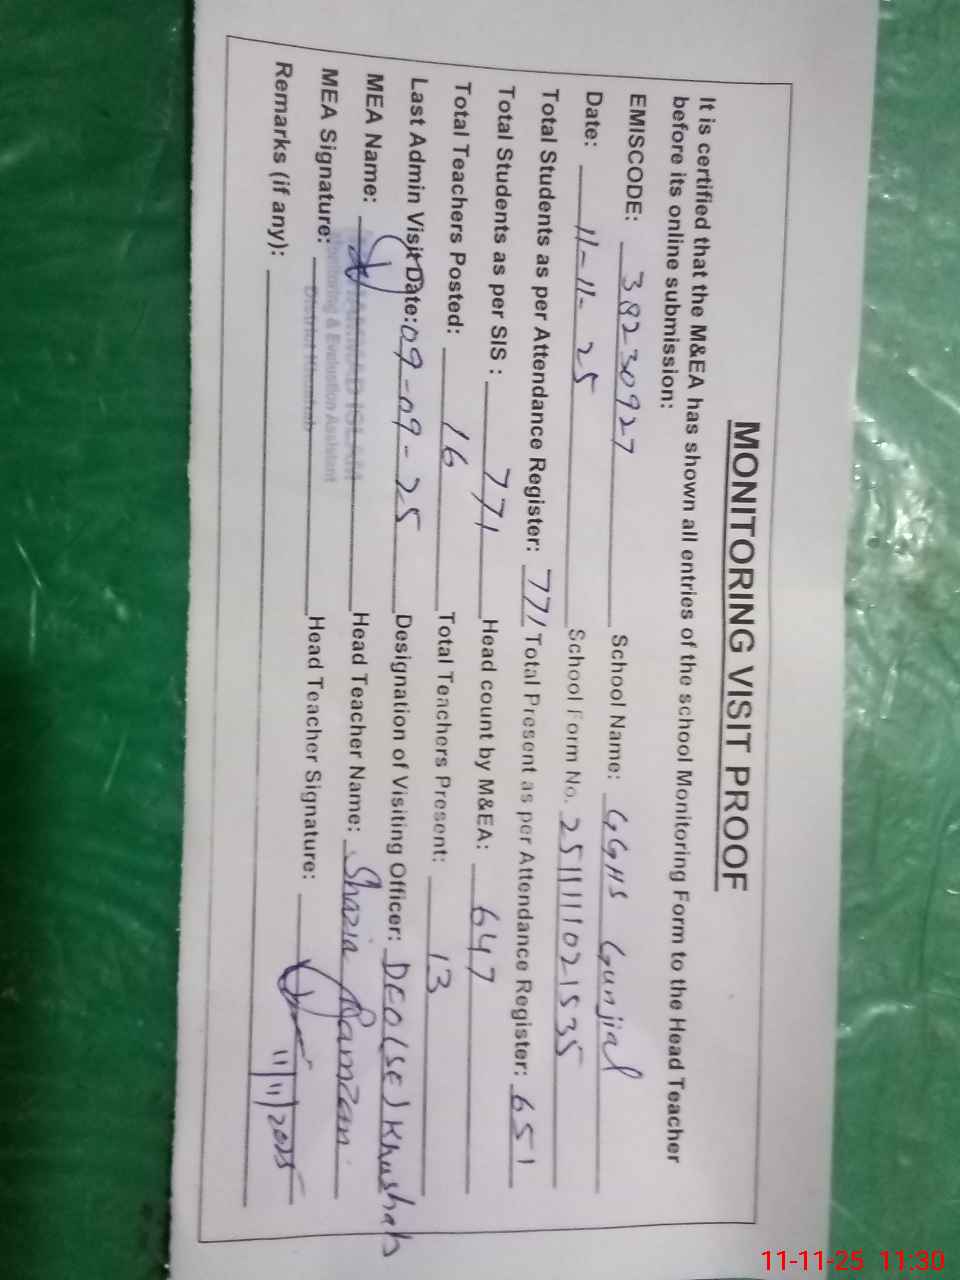 MONITORING VISIT PROOF
It is certified that the M&EA has shown all entries of the school Monitoring Form to the Head Teacher
before its online submission:
EMISCODE: 38230927 School Name: GGHS Gunjial
Date: 11-11-25 School Form No. 2511111021535
Total Students as per Attendance Register: 771 Total Present as per Attendance Register: 651
Total Students as per SIS : 771 Head count by M&EA: 647
Total Teachers Posted: 16 Total Teachers Present: 13
Last Admin Visit Date: 09-09-25 Designation of Visiting Officer: DEO (SE) Khushab
MEA Name: MUHAMMAD ISLAM Head Teacher Name: Shazia Ramzan
Monitoring & Evaluation Assistant
District Khushab
MEA Signature: Head Teacher Signature: 11/11/2025
Remarks (if any):
11-11-25 11:30